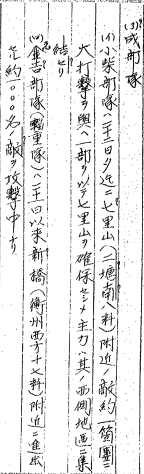 (3) 成部隊
(イ) 小柴部隊ハ二十一日夕迄ニ七里山(二塘南八料)附近ノ敵約一箇團ニ
大打撃ヲ與ヘ一部ヲ以テ七里山ヲ確保セシメ主力ハ其ノ西側地區ニ集
結セリ
部隊(重隊)ハ二十一日以来新橋(衡州西方十七料)附近ニ於
約一〇〇〇名ノ敵ヲ攻撃中ナリ